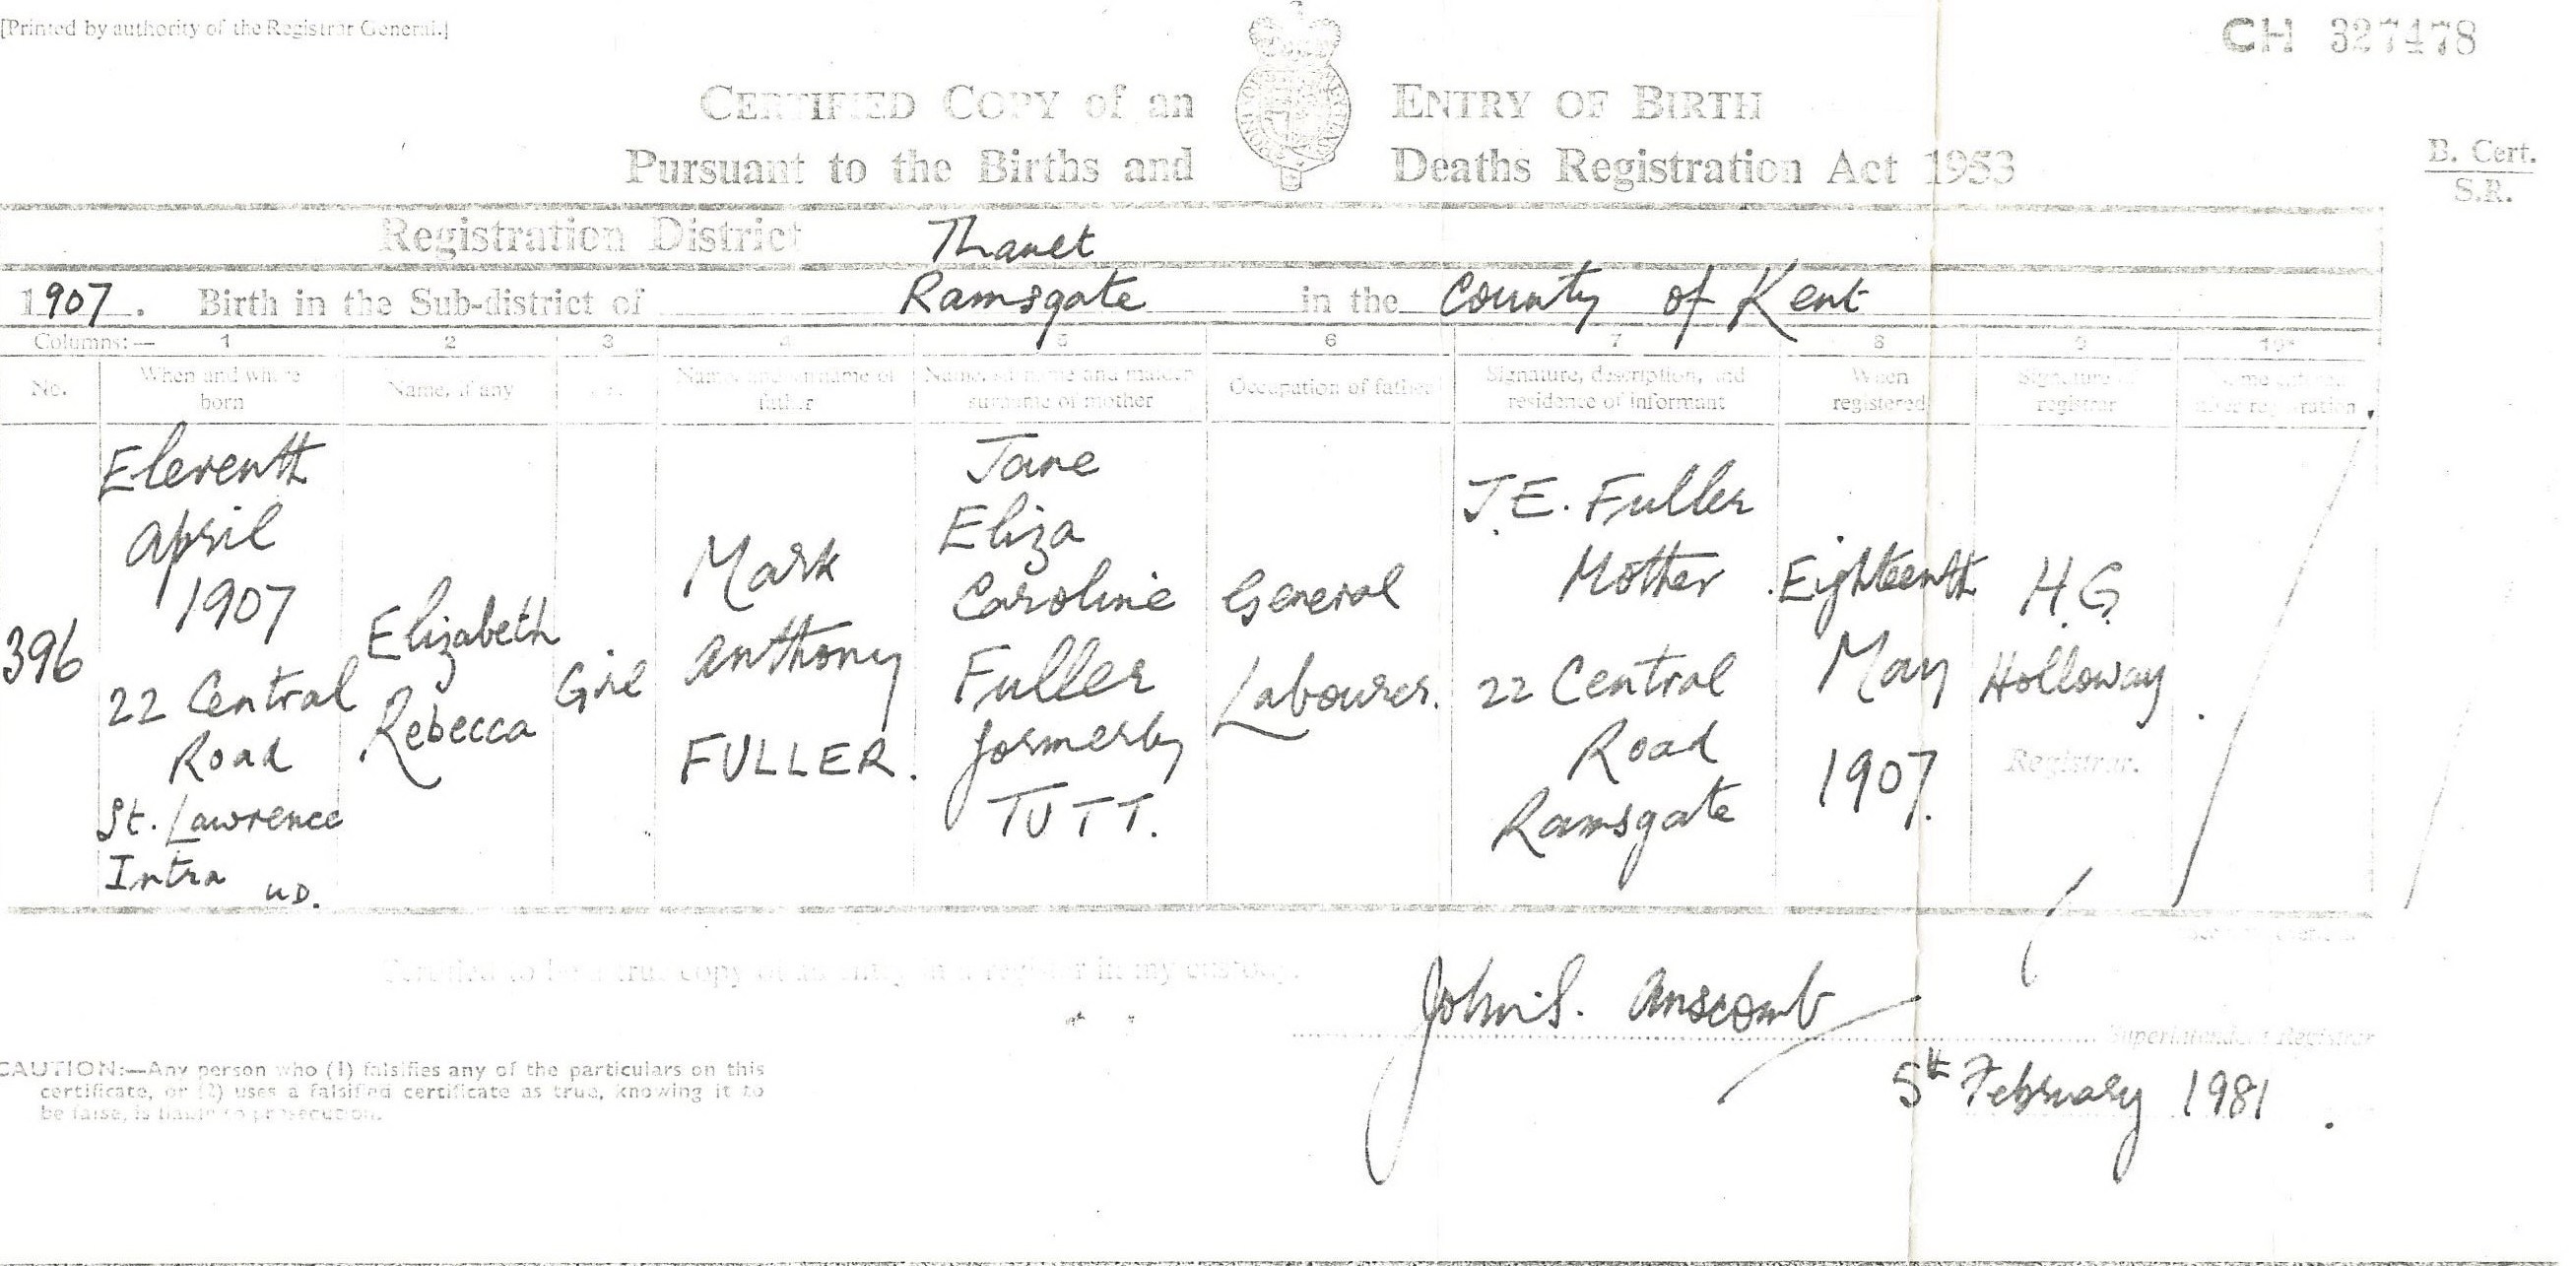 [Printed by authority of the Registrar General.]
CH 327478
CERTIFIED COPY of an ENTRY OF BIRTH
Pursuant to the Births and Deaths Registration Act 1953
B. Cert.
S.R.
Registration District Thanet
1907. Birth in the Sub-district of Ramsgate in the County of Kent
Columns:— 1 2 3 4 5 6 7 8 9 10*
No.
When and where
born
Name, if any
Name, and surname of
father
Name, surname and maiden
surname of mother
Occupation of father
Signature, description, and
residence of informant
When
registered
Signature of
registrar
registration
396
Eleventh
April
1907
22 Central
Road
St. Lawrence
Intra
U.D.
Elizabeth
Rebecca
Girl
Mark
Anthony
FULLER.
Jane
Eliza
Caroline
Fuller
formerly
TUTT.
General
Labourer.
J.E. Fuller
Mother
22 Central
Road
Ramsgate
Eighteenth
May
1907.
H.G.
Holloway.
Registrar.
Certified to be a true copy of an entry in a register in my custody.
John S. Anscomb
Superintendent Registrar
5th February 1981.
CAUTION:—Any person who (1) falsifies any of the particulars on this
certificate, or (2) uses a falsified certificate as true, knowing it to
be false, is liable to prosecution.